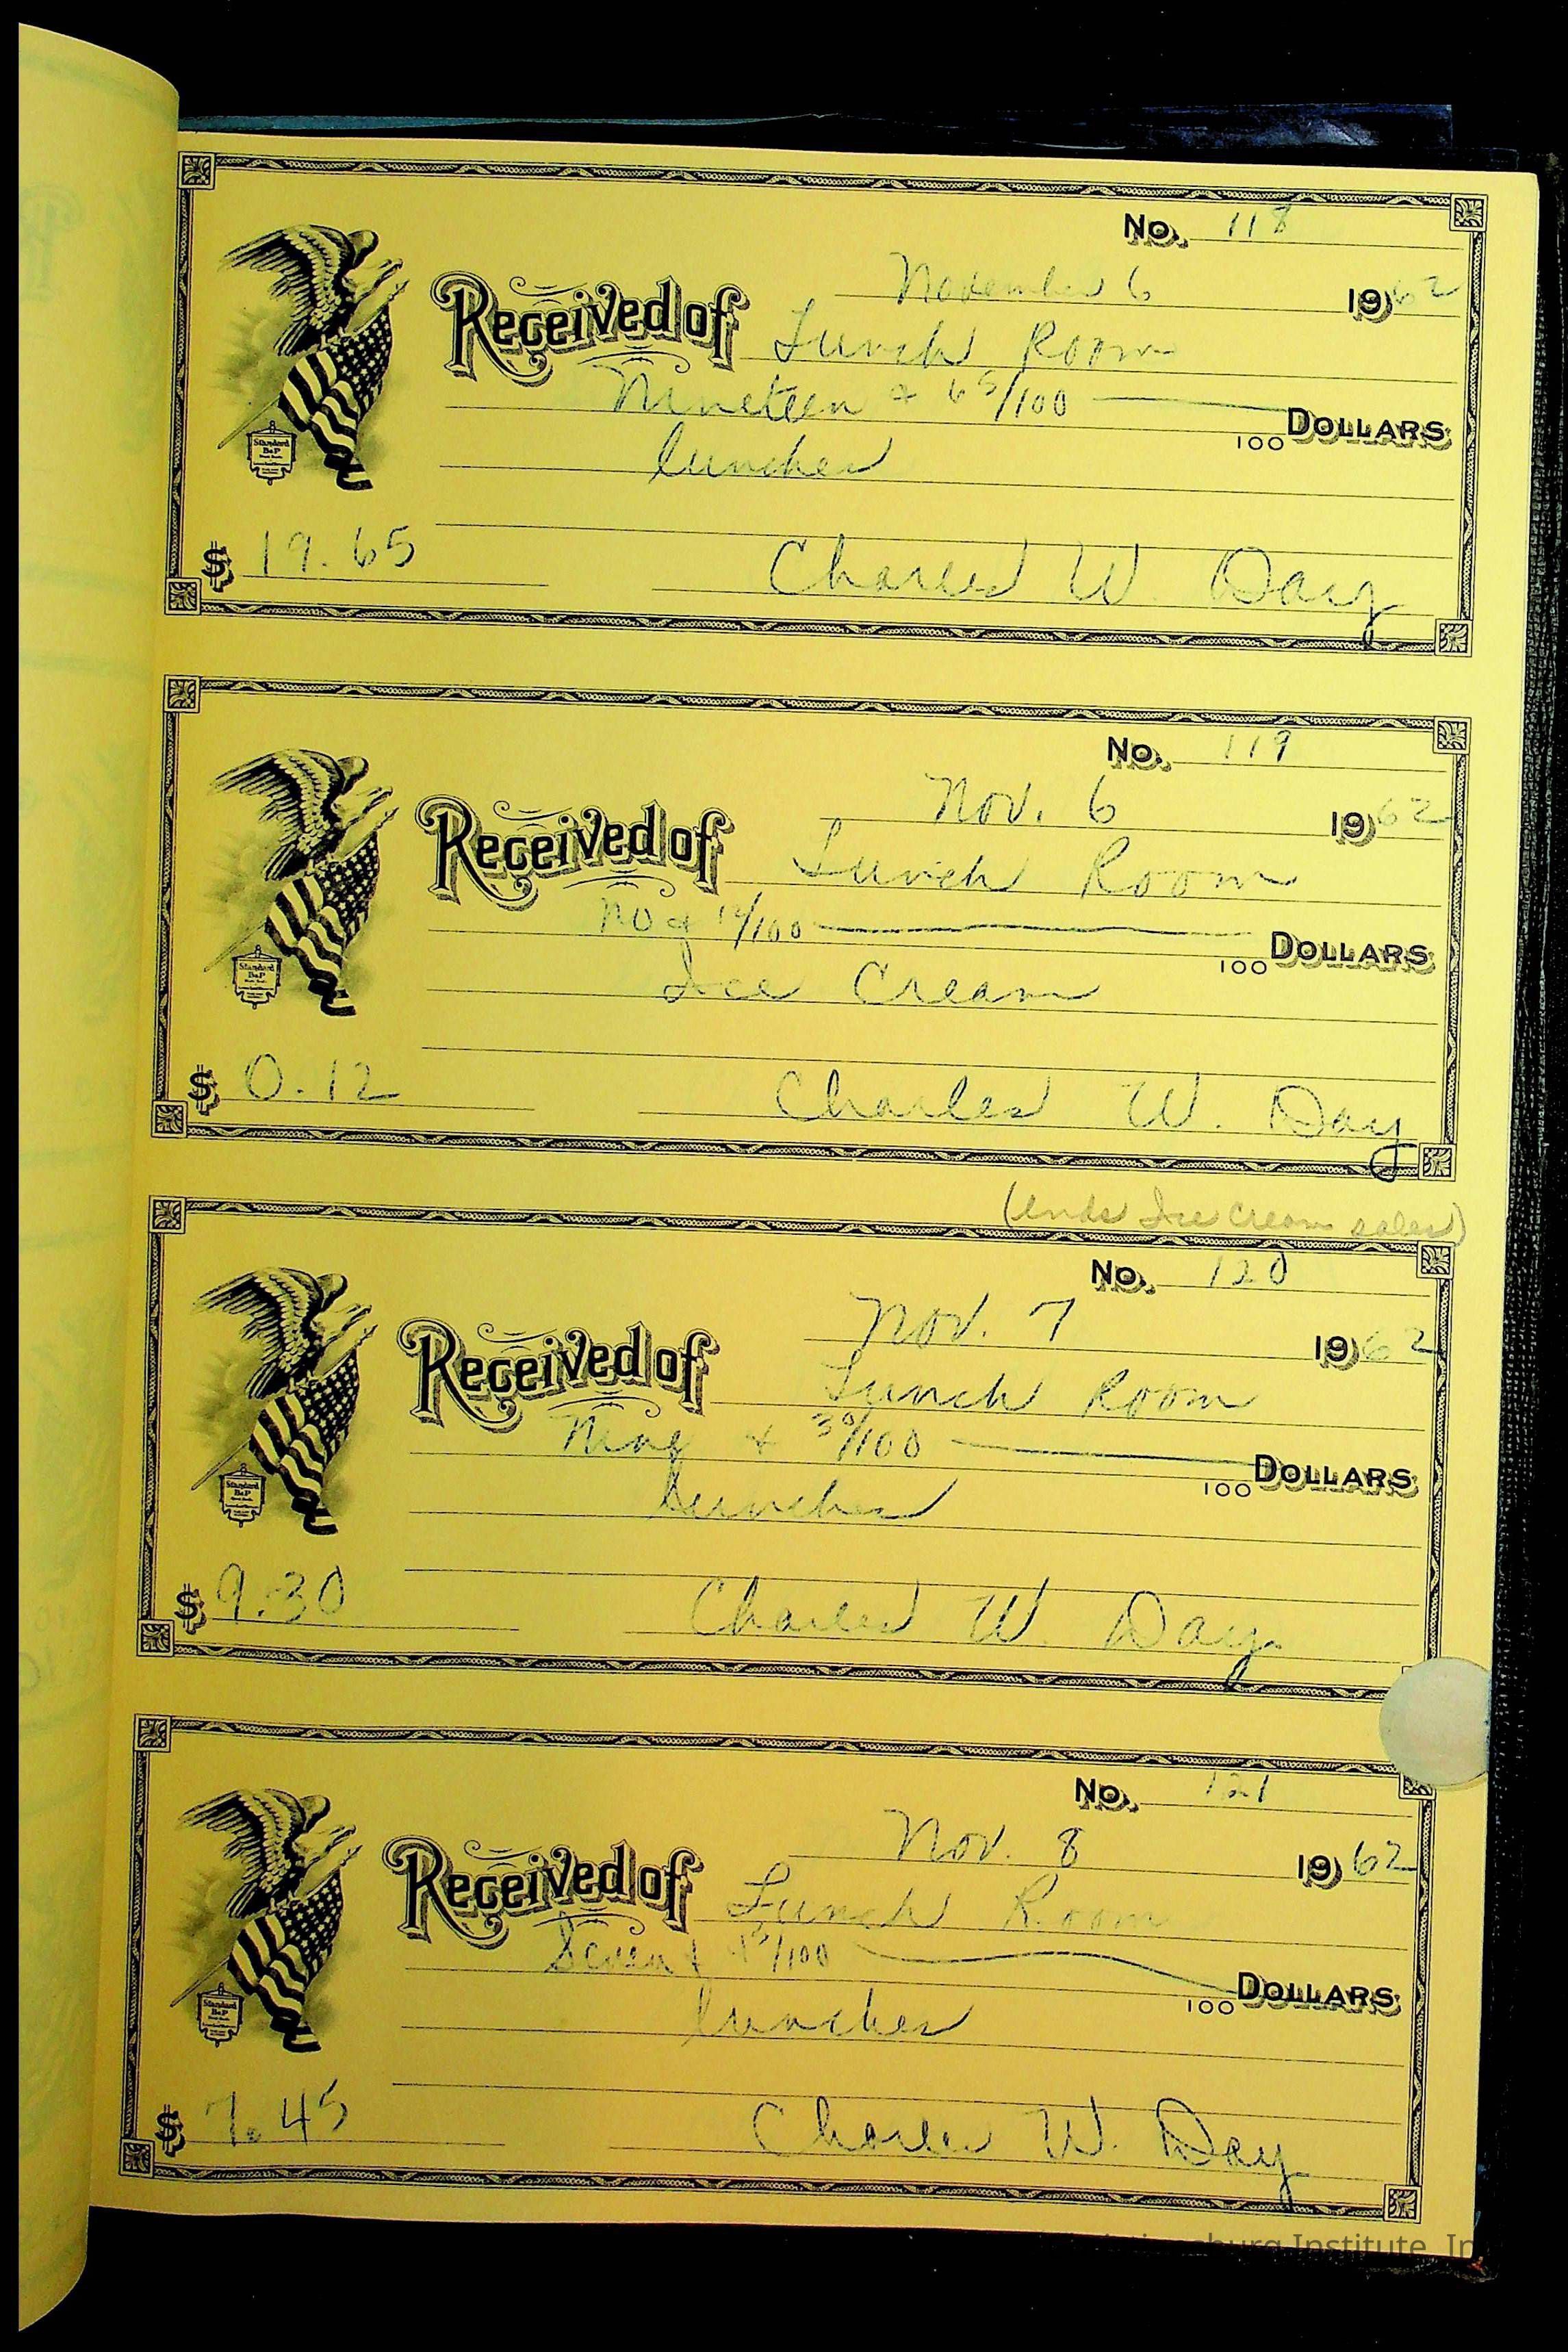 No. 118
November 6 1962
Received of Lunch Room
Nineteen & 65/100
100 DOLLARS
lunches
$ 19.65 Charles W. Day
Standard
B&P
No. 119
Nov. 6 1962
Received of Lunch Room
no & 12/100
100 DOLLARS
Ice Cream
$ 0.12 Charles W. Day
Standard
B&P
(ends Ice Cream sales)
No. 120
Nov. 7 1962
Received of Lunch Room
Nine & 30/100
100 DOLLARS
lunches
$ 9.30 Charles W. Day
Standard
B&P
No. 121
Nov. 8 1962
Received of Lunch Room
Seven & 45/100
100 DOLLARS
lunches
$ 7.45 Charles W. Day
Standard
B&P
Institute, In